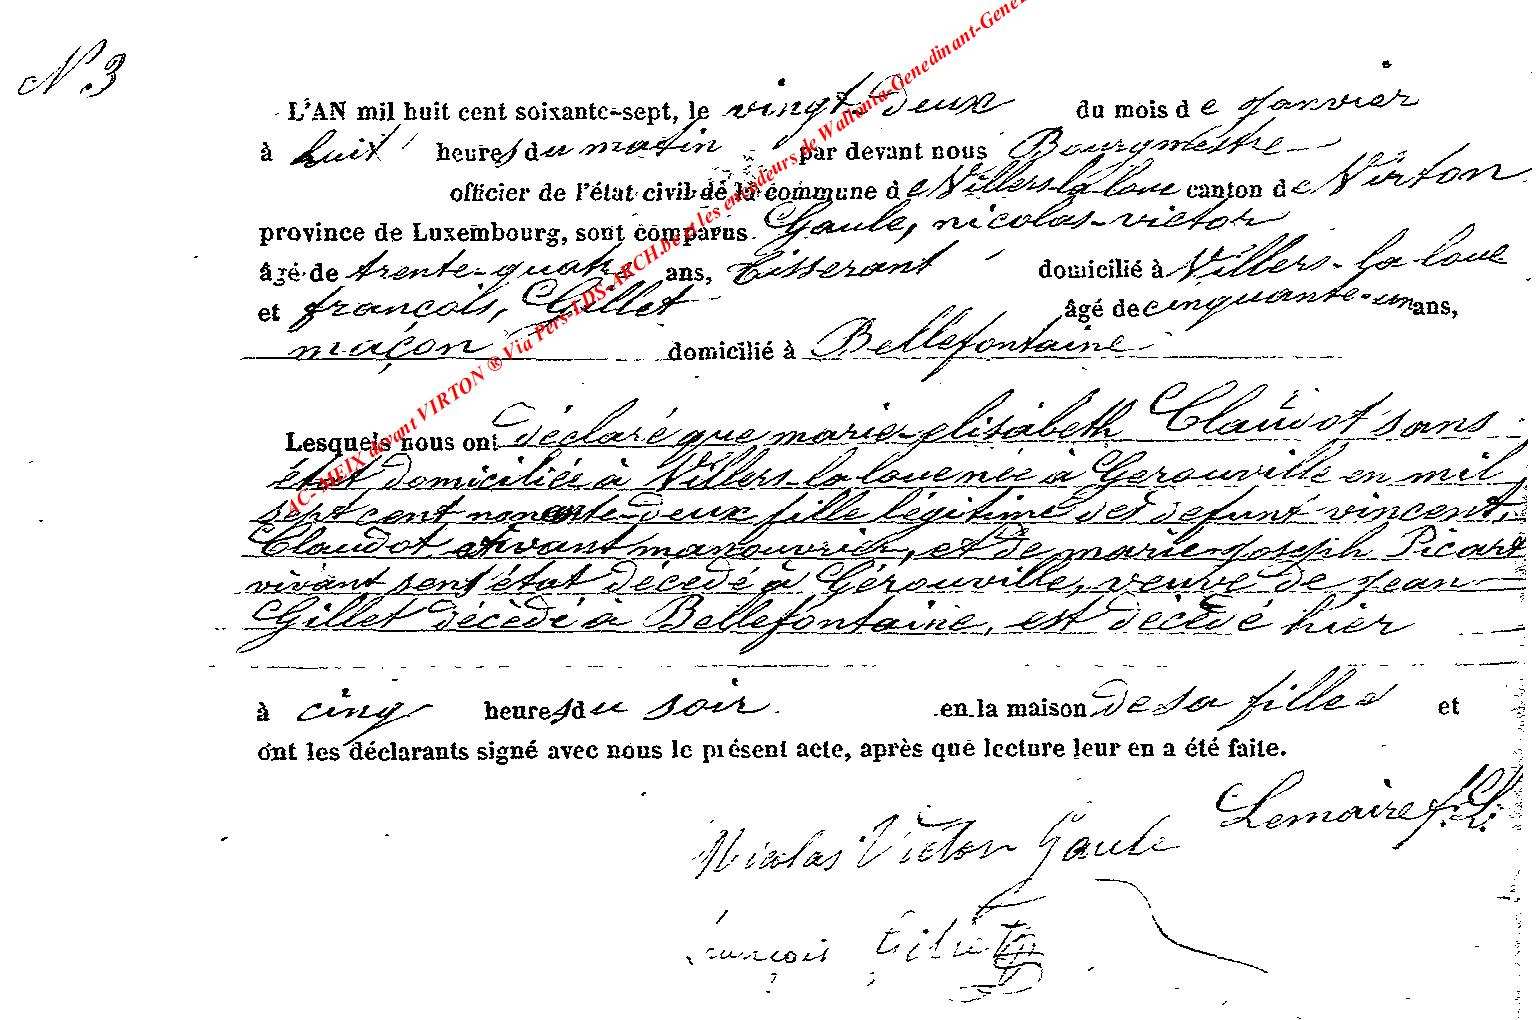 N° 3
L'AN mil huit cent soixante-sept, le vingt-deux du mois de janvier
à huit heures du matin par devant nous Bourgmestre
officier de l'état civil de la commune de Villers-la-loue canton de Virton
province de Luxembourg, sont comparus Gaule, nicolas-victor
âgé de trente-quatre ans, tisserant domicilié à Villers-la loue
et françois, Gillet âgé de cinquante-un ans,
maçon domicilié à Bellefontaine
Lesquels nous ont déclaré que marie-elisabeth Claudot sans
état domiciliée à Villers-la loue née à Gerouville en mil
sept cent nonante-deux fille légitime des defunt vincent,
Claudot vivant manouvrier, et de marie-joseph Picart
vivant sans état décedé à Gérouville, veuve de jean
Gillet décédé à Bellefontaine, est décédé hier
à cinq heures du soir en la maison de sa fille et
ont les déclarants signé avec nous le présent acte, après que lecture leur en a été faite.
Lemaire
Nicolas Victor Gaule
françois Gillet
AC- MEIX devant VIRTON ® Via Pers-LDS-ARCH.be et les encodeurs de Wallonia-Genedinant-Gene